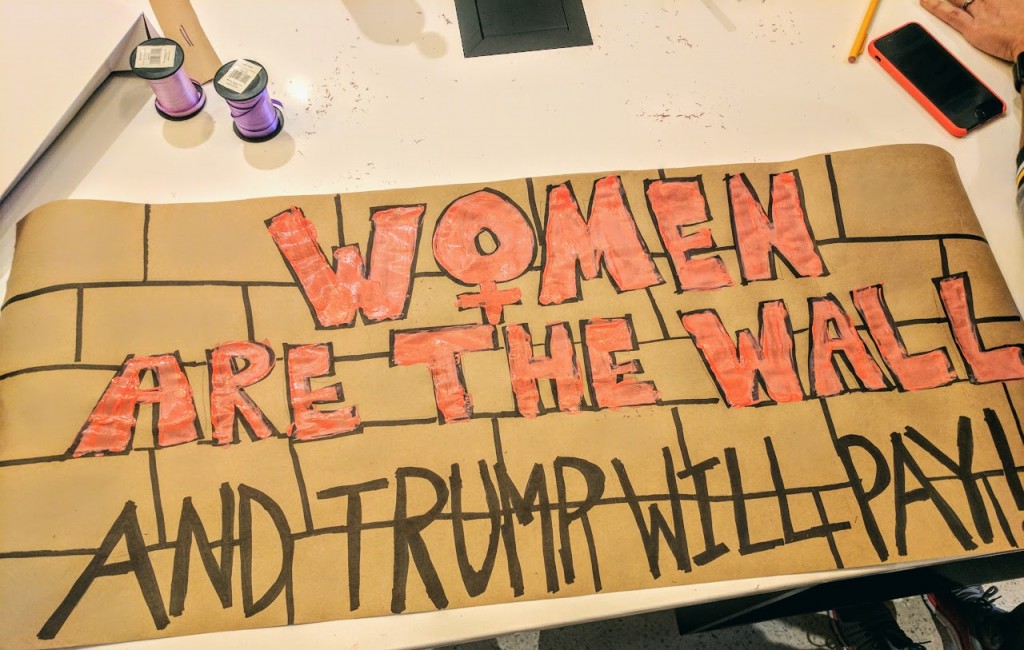 WOMEN
ARE THE WALL
AND TRUMP WILL PAY!